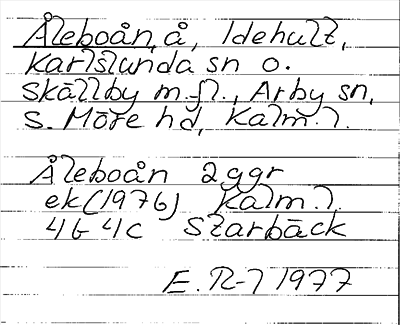 Åleboån, å, Idehult,
Karlslunda sn o.
Skällby m.fl., Arby sn,
S. Möre hd, Kalm.l.
Åleboån 2ggr
ek(1976) Kalm.l.
4G 4c Starbäck
E. R-7 1977